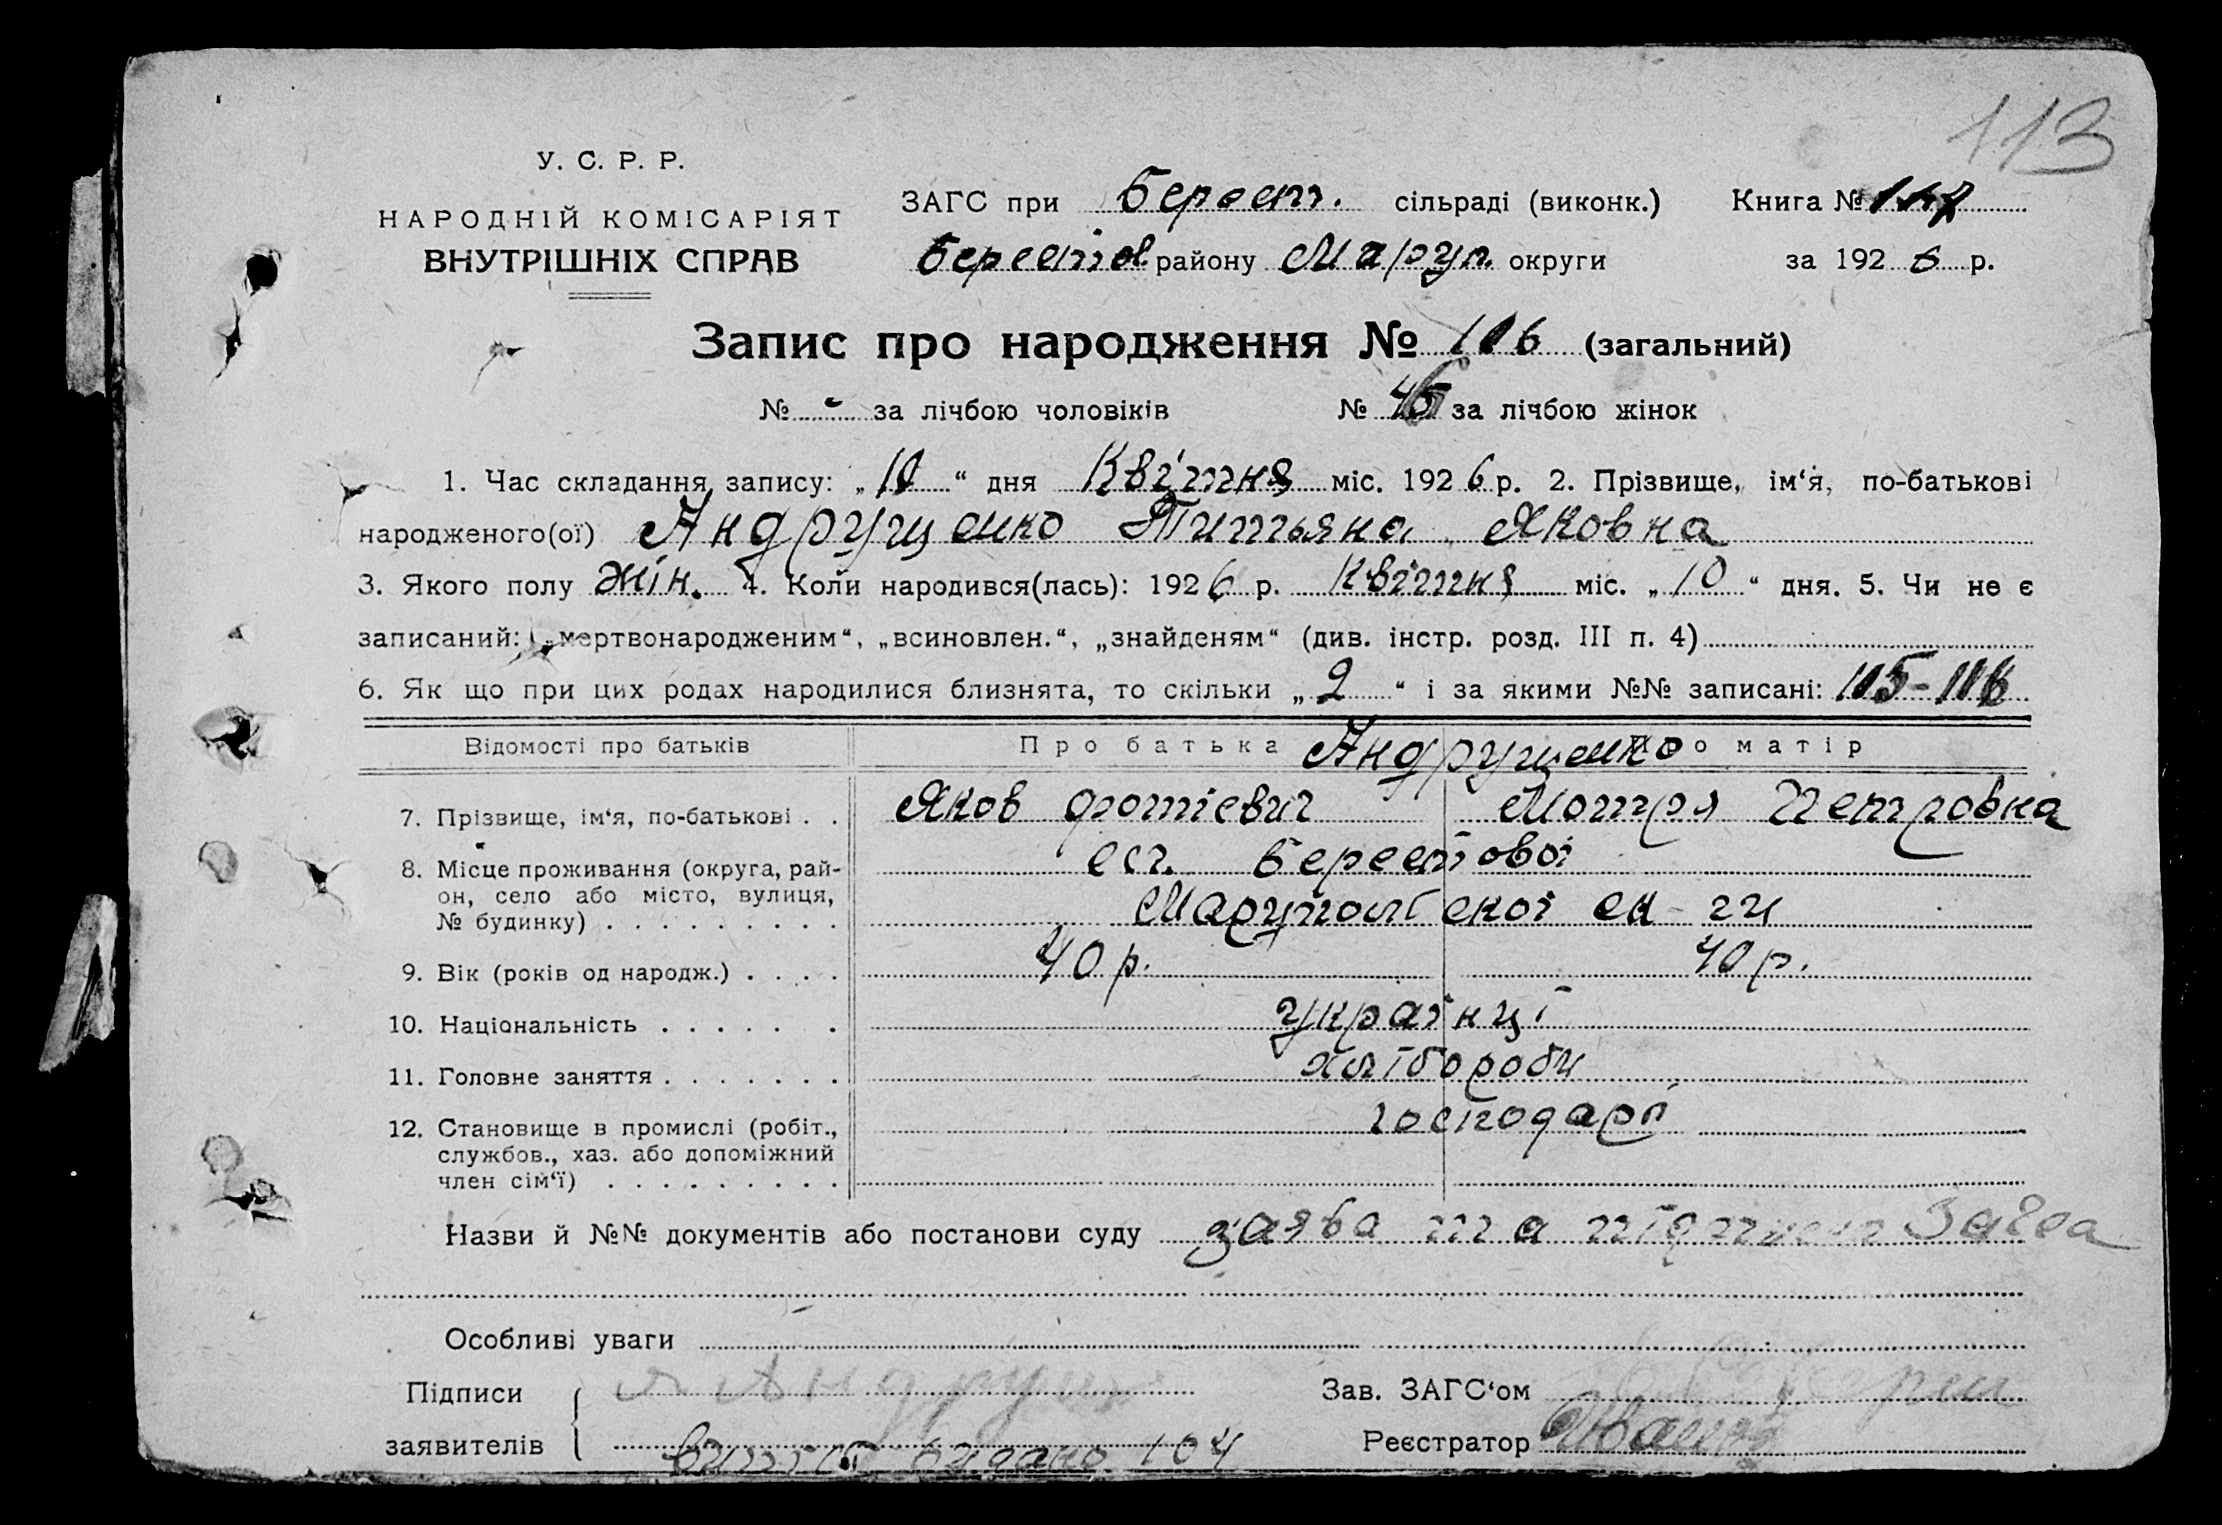 113
У. С. Р. Р.
НАРОДНІЙ КОМІСАРІЯТ
ВНУТРІШНІХ СПРАВ
ЗАГС при Берест. сільраді (виконк.) Книга №
Берестів району Маруп. округи за 192 6 р.
Запис про народження № 106 (загальний)
№ - за лічбою чоловіків № 46 за лічбою жінок
1. Час складання запису: „10“ дня Квітня міс. 192 6 р. 2. Прізвище, ім‘я, по-батькові
народженого(ої) Андрущенко Титьяна Яковна
3. Якого полу жін. 4. Коли народився(лась): 192 6 р. Квітня міс. „10“ дня. 5. Чи не є
записаний: „мертвонародженим“, „всиновлен.“, „знайденям“ (див. інстр. розд. III п. 4)
6. Як що при цих родах народилися близнята, то скільки „2“ і за якими №№ записані: 105-106
Відомості про батьків Про батька Про матір
Андрущенко
7. Прізвище, ім‘я, по-батькові . . Яков Фотієвич Мотря Петровна
8. Місце проживання (округа, рай-
он, село або місто, вулиця,
№ будинку) . . . . . . . . .
с. Берестової
Марупольської ок-ги
9. Вік (років од народж.) . . . . 40 р. 40 р.
10. Національність . . . . . . українці
11. Головне заняття . . . . . . . хлібороби
12. Становище в промислі (робіт.,
службов., хаз. або допоміжний
член сім‘ї) . . . . . . . . .
господарі
Назви й №№ документів або постанови суду заява та Загса
Особливі уваги
Підписи
заявителів
Я Андрущ
видано 104
Зав. ЗАГС‘ом
Реєстратор